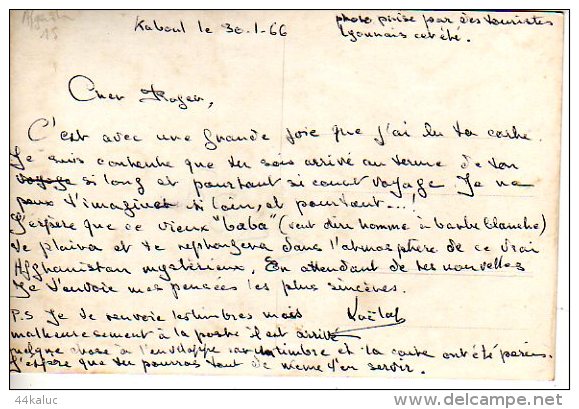 Afghan
15
Kaboul le 30-1-66
photo prise par des touristes
Lyonnais cet été.
Cher Roger,
C'est avec une grande joie que j'ai lu ta carte.
Je suis contente que tu sois arrivé au terme de ton
voyage si long et pourtant si court voyage Je ne
peux t'imaginer si loin, et pourtant...!
J'espère que ce vieux "baba" (veut dire homme à barbe blanche)
te plaira et te replongera dans l'atmosphère de ce vrai
Afghanistan mystérieux. En attendant de tes nouvelles
Je t'envoie mes pensées les plus sincères.
P.S Je te renvoie les timbres mais
malheureusement à la poste il est arrivé
quelque chose à l'enveloppe car un timbre et la carte ont été
j'espère que tu pourras tout de même t'en servir.
44kaluc
www.delcampe.net